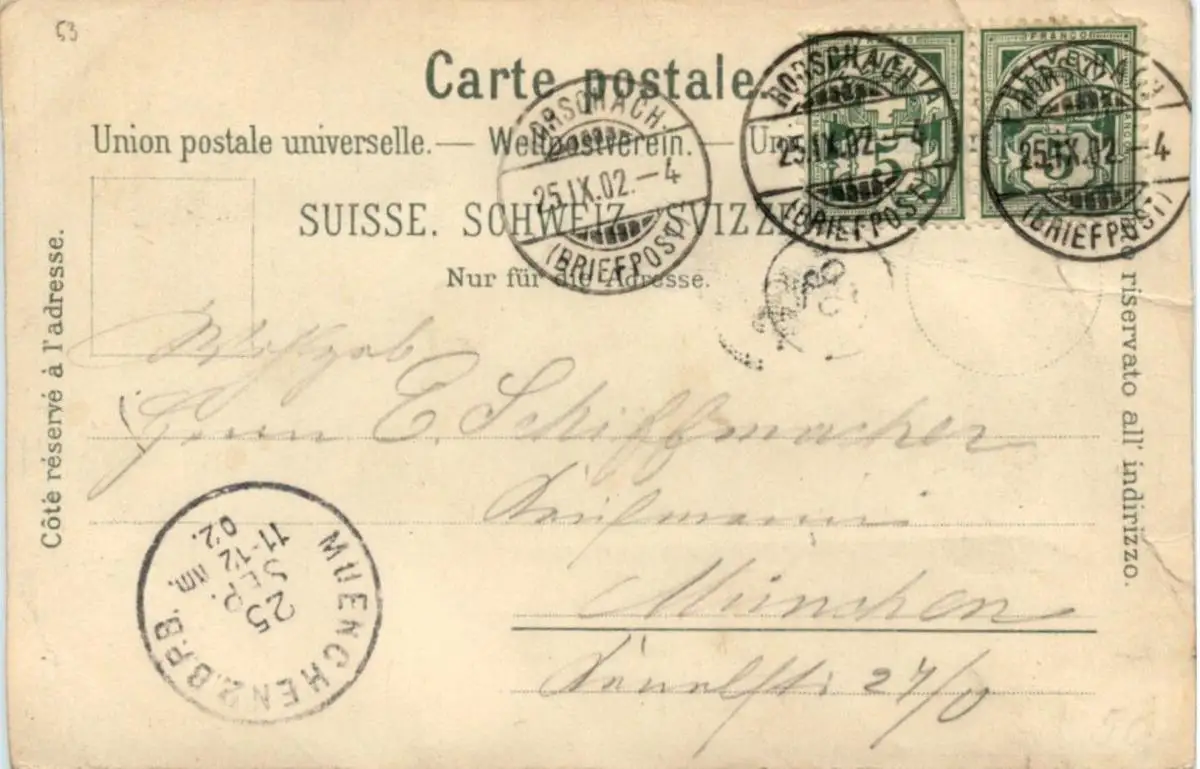 53
Carte postale.
Union postale universelle. — Weltpostverein. — Uni
SUISSE. SCHWEIZ. SVIZZE
Nur für die Adresse.
Côté réservé à l'adresse.
riservato all' indirizzo.
FRANCO
HELVETIA
5
FRANCO
HELVETIA
5
RORSCHACH
25.IX.02.–4
(BRIEFPOST)
RORSCHACH
25.IX.02.–4
(BRIEFPOST)
RORSCHACH
25.IX.02.–4
(BRIEFPOST)
Herrn E. Schiffmacher
Kaufmann
München
27/0
MUENCHEN 2.B.P.B.
25
SEP.
11-12 NM.
02.